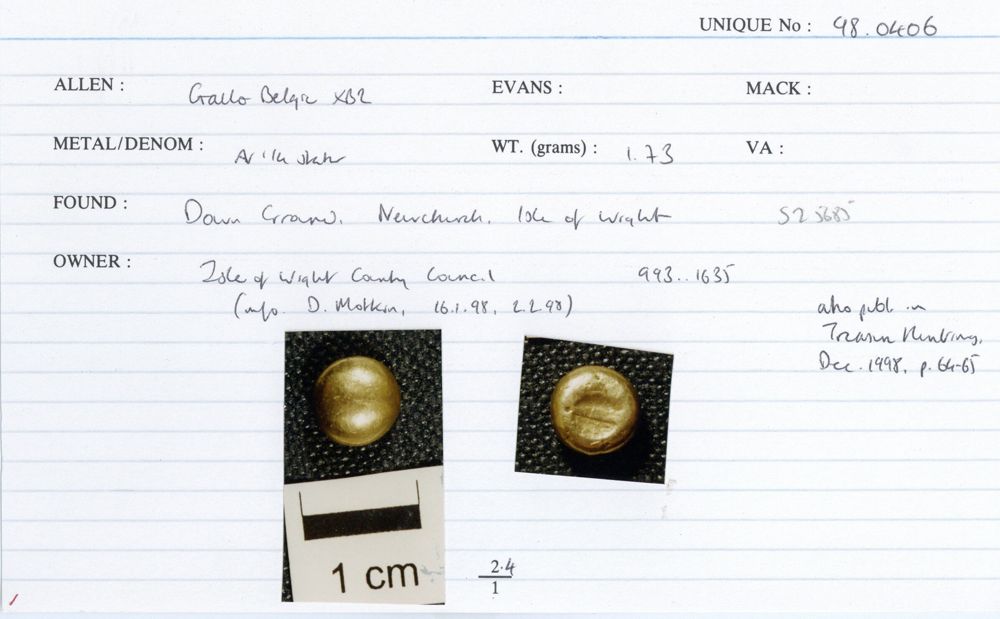 UNIQUE No : 98.0406
ALLEN : Gallo-Belgic XB2 EVANS : MACK :
METAL/DENOM : AV 1/4 stater WT. (grams) : 1.73 VA :
FOUND : Down Ground, Newchurch, Isle of Wight SZ 5685
OWNER : Isle of Wight County Council 993..1635
(info. D. Motkin, 16.1.98, 2.2.98) also publ. in
Treasure Hunting,
Dec. 1998, p. 64-65
1 cm
2.4
1